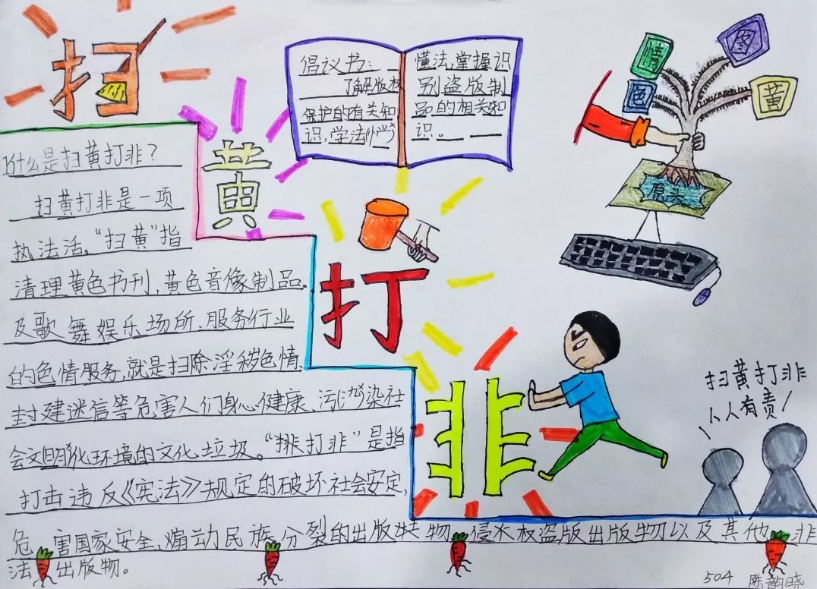 扫
黄
打
非
倡议书：
了解版权
保护的有关知
识,学法
懂法,掌握识
别盗版制
品的相关知
识。
情
色
图
黄
源头
什么是扫黄打非？
扫黄打非是一项
执法活。“扫黄”指
清理黄色书刊,黄色音像制品。
及歌舞娱乐场所、服务行业
的色情服务,就是扫除淫秽色情
封建迷信等危害人们身心健康、污染社
会文明化环境的文化垃圾。“打非”是指
打击违反《宪法》规定的破坏社会安定,
危害国家安全,煽动民族分裂的出版物。侵权盗版出版物以及其他非
法出版物。
扫黄打非
人人有责!
504 陈韵晓